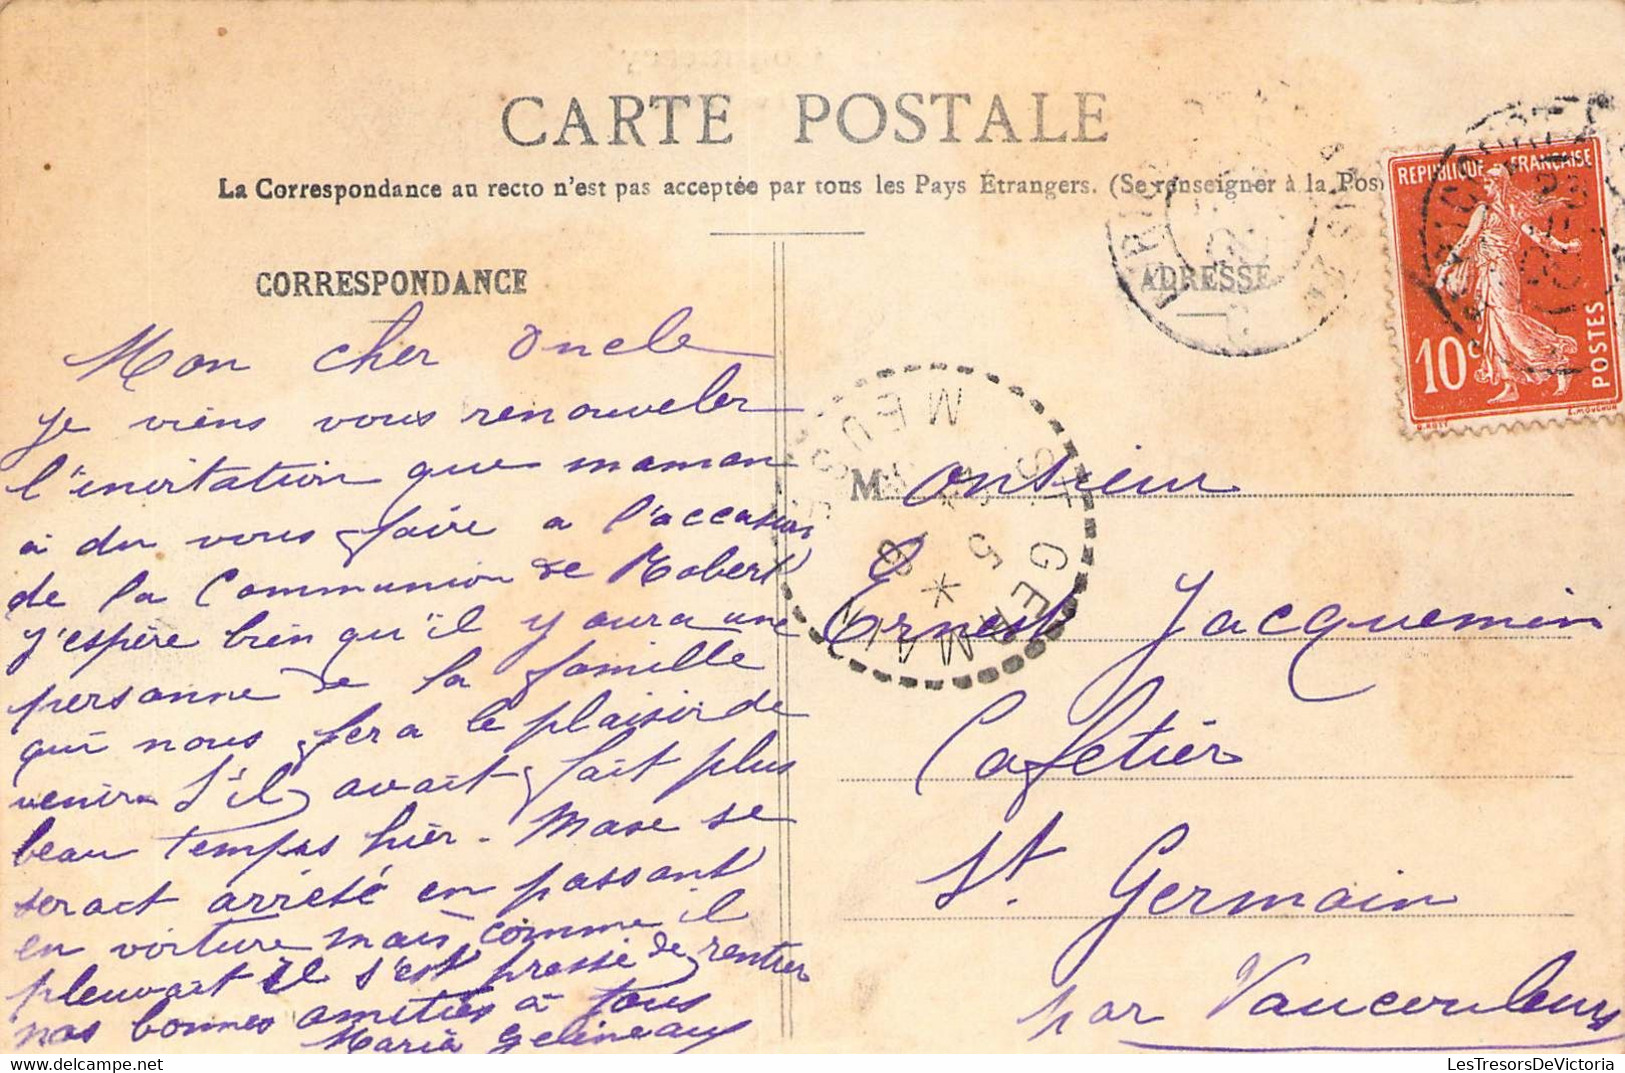 CARTE POSTALE
La Correspondance au recto n'est pas acceptée par tous les Pays Étrangers. (Se renseigner à la Pos
CORRESPONDANCE
Mon cher Oncle
je viens vous renouveler
l'invitation que maman
à du vous faire a l'accasion
de la Communion de Robert
J'espère bien qu'il y aura une
personne de la famille
qui nous fera le plaisir de
venir S'il avait fait plus
beau temps hier. Maxe se
serait arrêté en passant
en voiture mais comme il
pleuvait il s'est pressé de rentrer
nos bonnes amitiés à tous
Maria Gelineau
ADRESSE
REPUBLIQUE FRANÇAISE
10c
POSTES
E. MOUCHON
ST GERMAIN
MEUSE
Monsieur
Ernest Jacquemin
Cafetier
St. Germain
par Vaucouleurs
LesTresorsDeVictoria